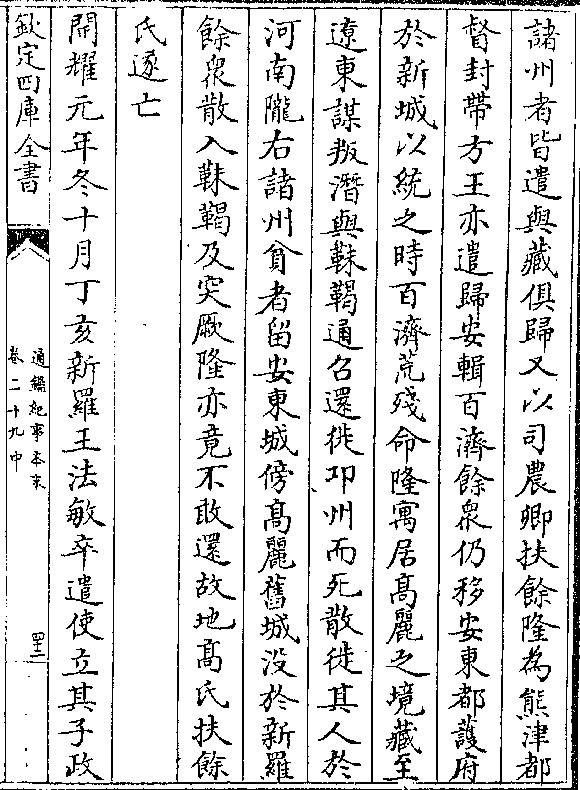 諸州者皆遣與藏俱歸又以司農卿扶餘隆為熊津都
督封帶方王亦遣歸安輯百濟餘衆仍移安東都護府
於新城以統之時百濟荒殘命隆寓居高麗之境藏至
遼東謀叛潛與靺鞨通召還徙邛州而死散徙其人於
河南隴右諸州貧者留安東城傍高麗舊城没於新羅
餘衆散入靺鞨及突厥隆亦竟不敢還故地高氏扶餘
氏遂亡
開耀元年冬十月丁亥新羅王法敏卒遣使立其子政
欽定四庫全書
通鑑紀事本末
卷二十九中
四十二